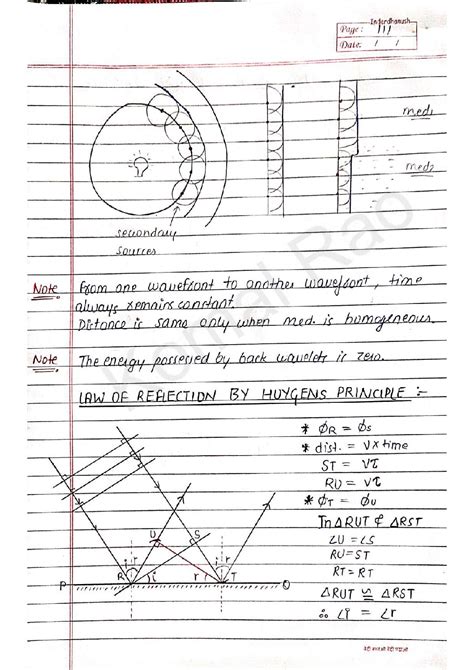 Inderdhanush
Page: 111
Date: / /
med1
med2
secondary
sources
Note From one wavefront to another wavefront, time
always remains constant
Distance is same only when med. is homogeneous.
Note The energy possessed by back wavelets is zero.
LAW OF REFLECTION BY HUYGENS PRINCIPLE :-
* ϕR = ϕS
* dist. = v×time
ST = vτ
RU = vτ
* ϕT = ϕU
In △RUT & △RST
∠U = ∠S
RU = ST
RT = RT
△RUT ≅ △RST
∴ ∠i = ∠r
U S
i r i r
P R i r T Q
Komal Rao